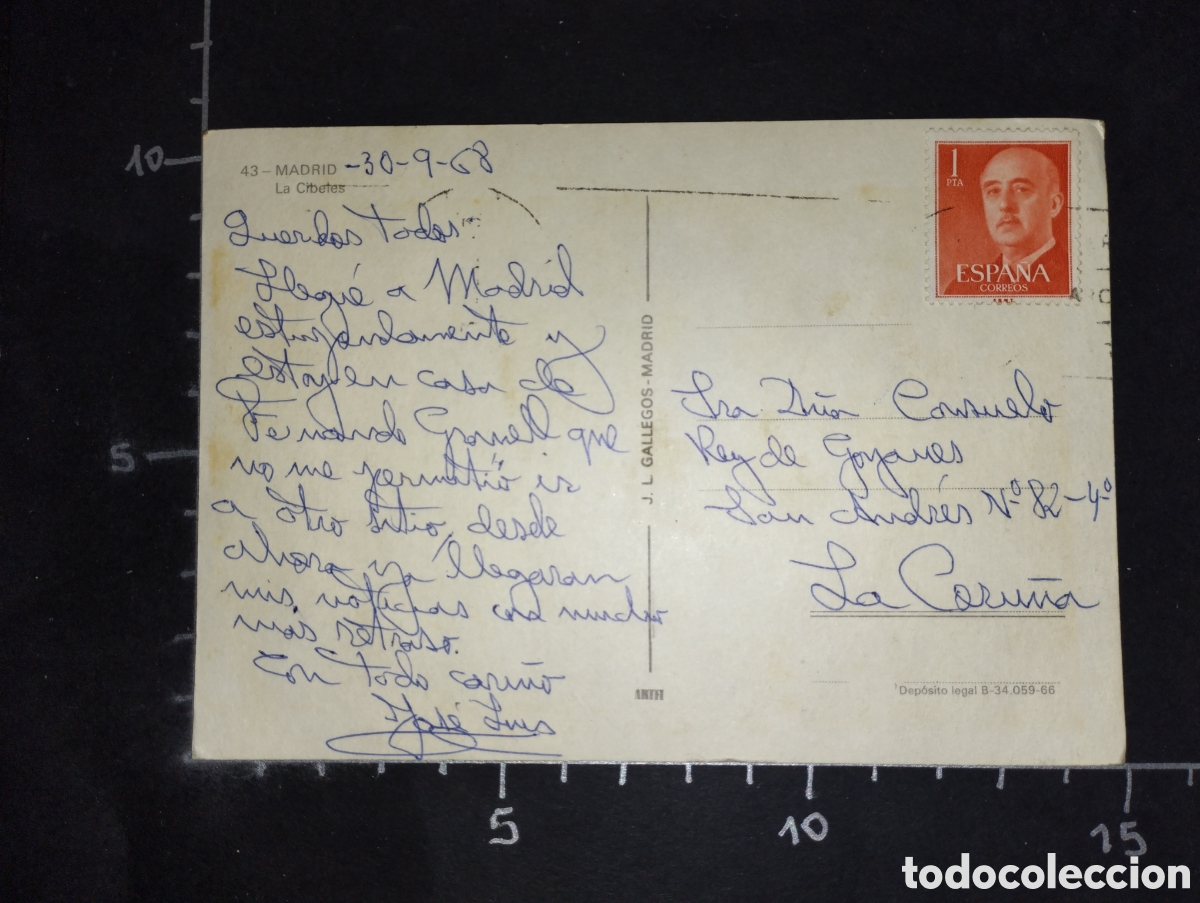 43 – MADRID -30-9-68
La Cibeles
Queridos Todos
Llegué a Madrid
estupendamente y
estoy en casa de
Fernando Granell que
no me permitió ir
a otro sitio, desde
ahora ya llegaran
mis noticias con mucho
más retraso.
Con todo cariño
José Luis
J. L. GALLEGOS - MADRID
1
PTA
ESPAÑA
CORREOS
Sra Dña Consuelo
Rey de Goyanes
San Andrés Nº 82-4º
La Coruña
Depósito legal B-34.059-66
10
5
5
10
15
todocoleccion